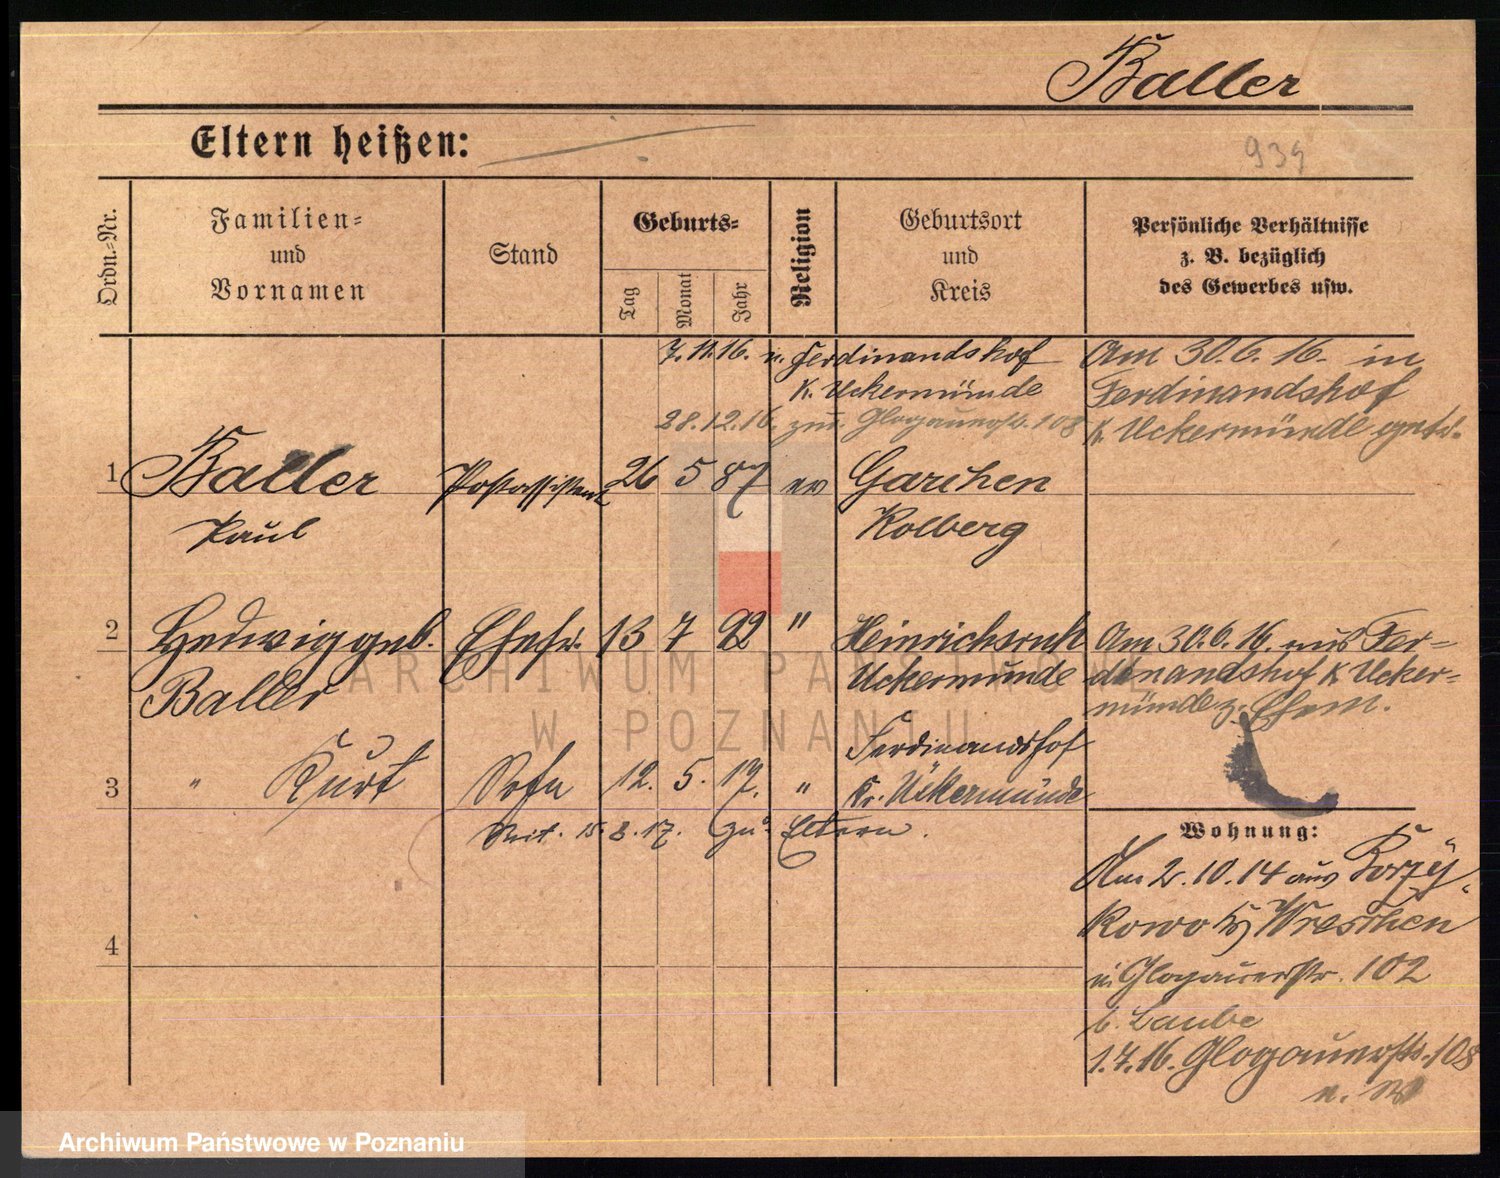 Baller
Eltern heißen:
939
Ordn.-Nr.
Familien- und Vornamen
Stand
Geburts-
Tag
Monat
Jahr
Religion
Geburtsort und Kreis
Persönliche Verhältnisse z. B. bezüglich des Gewerbes usw.
7.11.16. n. Ferdinandshof
K. Uckermünde
28.12.16. zur. Glogauerstr. 108
Am 30.6.16. in
Ferdinandshof
K. Uckermünde
1 Baller Postassistent 26 5 87 ev Garchen
Paul Kolberg
2 Hedwig geb. Ehefr. 13 7 92 " Heinrichsruh
Baller Uckermünde
Am 30.6.16. aus Fer-
dinandshof K Ucker-
münde z. Ehem.
3 " Kurt Sohn 12. 5. 17. " Ferdinandshof
Kr. Ückermünde
15.8.17. zu Eltern.
Wohnung:
Am 2.10.14 aus Borzy-
kowo Kr Wreschen
in Glogauerstr. 102
b. Laube
1.7.16. Glogauerstr. 108
4
ARCHIWUM PAŃSTWOWE
W POZNANIU
Archiwum Państwowe w Poznaniu